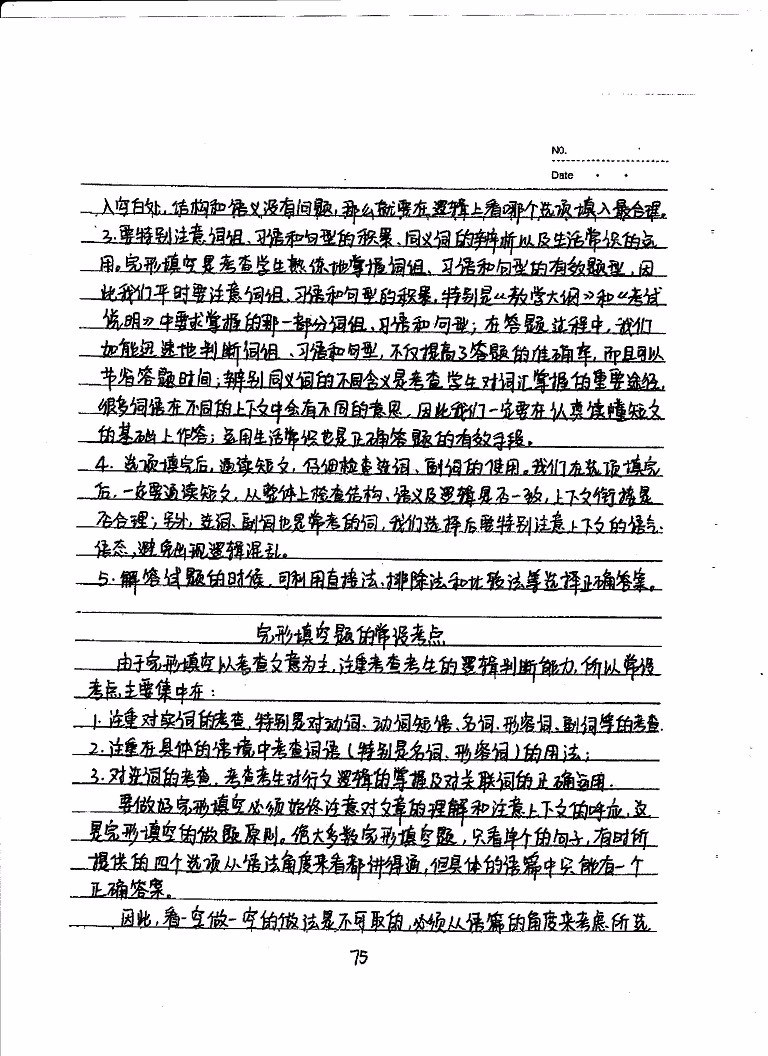 NO.
Date
入空白处,结构和语义没有问题,那么就要在逻辑上看哪个选项填入最合理。
3.要特别注意词组、习语和句型的积累、同义词的辨析以及生活常识的运
用。完形填空是考查学生熟练地掌握词组、习语和句型的有效题型,因
此我们平时要注意词组、习语和句型的积累,特别是《教学大纲》和《考试
说明》中要求掌握的那一部分词组、习语和句型;在答题过程中,我们
如能迅速地判断词组、习语和句型,不仅提高了答题的准确率,而且可以
节省答题时间;辨别同义词的不同含义是考查学生对词汇掌握的重要途径,
很多词语在不同的上下文中会有不同的意思,因此我们一定要在认真读懂短文
的基础上作答;运用生活常识也是正确答题的有效手段。
4. 选项填完后,通读短文,仔细检查连词、副词的使用。我们在选项填完
后,一定要通读短文,从整体上检查结构、语义及逻辑是否一致,上下文衔接是
否合理;另外,连词、副词也是常考的词,我们选择后要特别注意上下文的语气、
语态,避免出现逻辑混乱。
5.解答试题的时候,可利用直接法、排除法和比较法等选择正确答案。
完形填空题的常设考点
由于完形填空以考查文意为主,注重考查考生的逻辑判断能力,所以常设
考点主要集中在:
1.注重对实词的考查,特别是对动词、动词短语、名词、形容词、副词等的考查.
2.注重在具体的语境中考查词语(特别是名词、形容词)的用法;
3.对连词的考查,考查考生对行文逻辑的掌握及对关联词的正确运用.
要做好完形填空必须始终注意对文章的理解和注意上下文的呼应,这
是完形填空的做题原则。绝大多数完形填空题,只看单个的句子,有时所
提供的四个选项从语法角度来看都讲得通,但具体的语篇中只能有一个
正确答案。
因此,看一空做一空的做法是不可取的,必须从语篇的角度来考虑所选
75